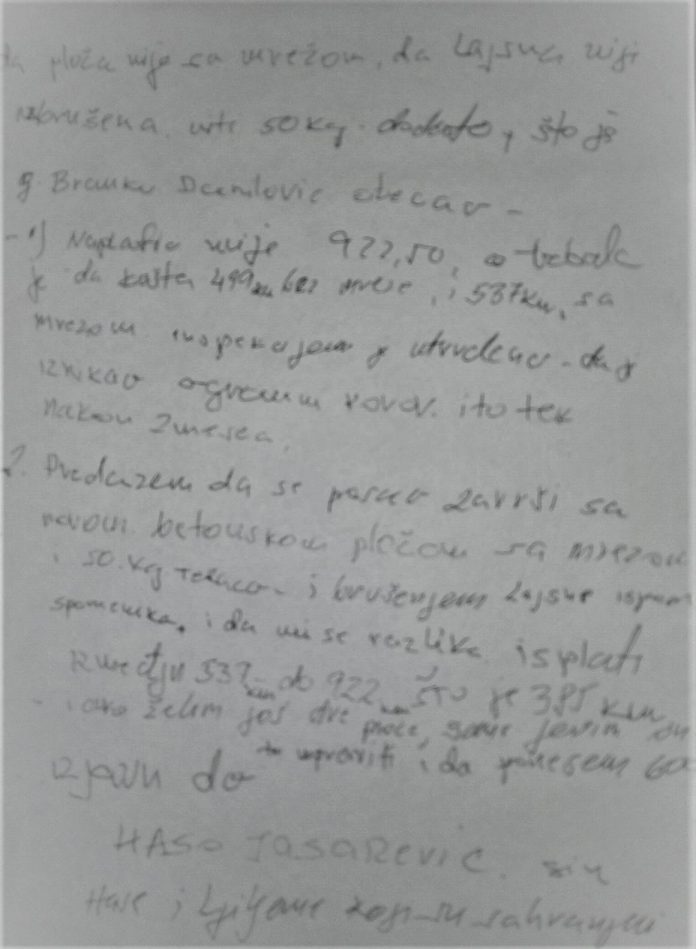 da ploča nije sa mrežom, da Lajsna nije
izbrušena. niti 50 kg. dodato, što je
g. Branku Danilovic obecao -
- 1) Naplatio nije 922,50, a trebala
je da košta 499 km bez mreže, i 537 km, sa
mrezom inspekcijom je utvrđeno - da je
iznikao ogroman korov. i to tek
nakon 2 meseca.
2. Predlazem da se posao završi sa
novom betonskom pločom sa mrezom
i 50. kg i brušenjem Lajsne ispred
spomenika. i da mi se razlika isplati
između 537 km do 922 km što je 385 km
- i ako želim još dve ploče, samo javim
to napraviti i da
izjavu do
HASO JASAREVIC. sin
Hase i Ljiljane koji su sahranjeni